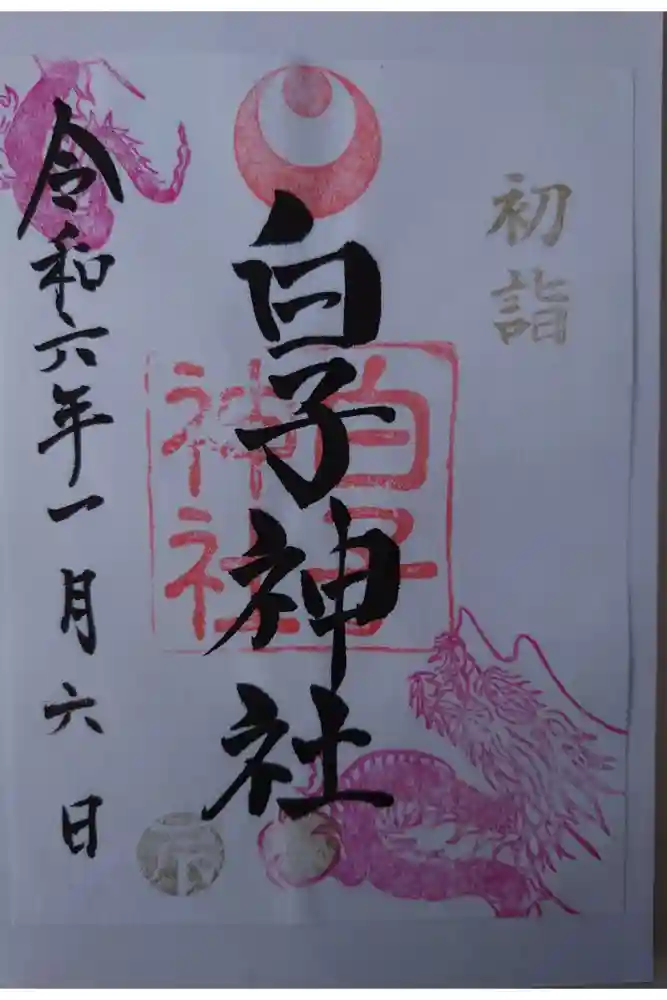 初詣
白子神社
白子神社
令和六年一月六日